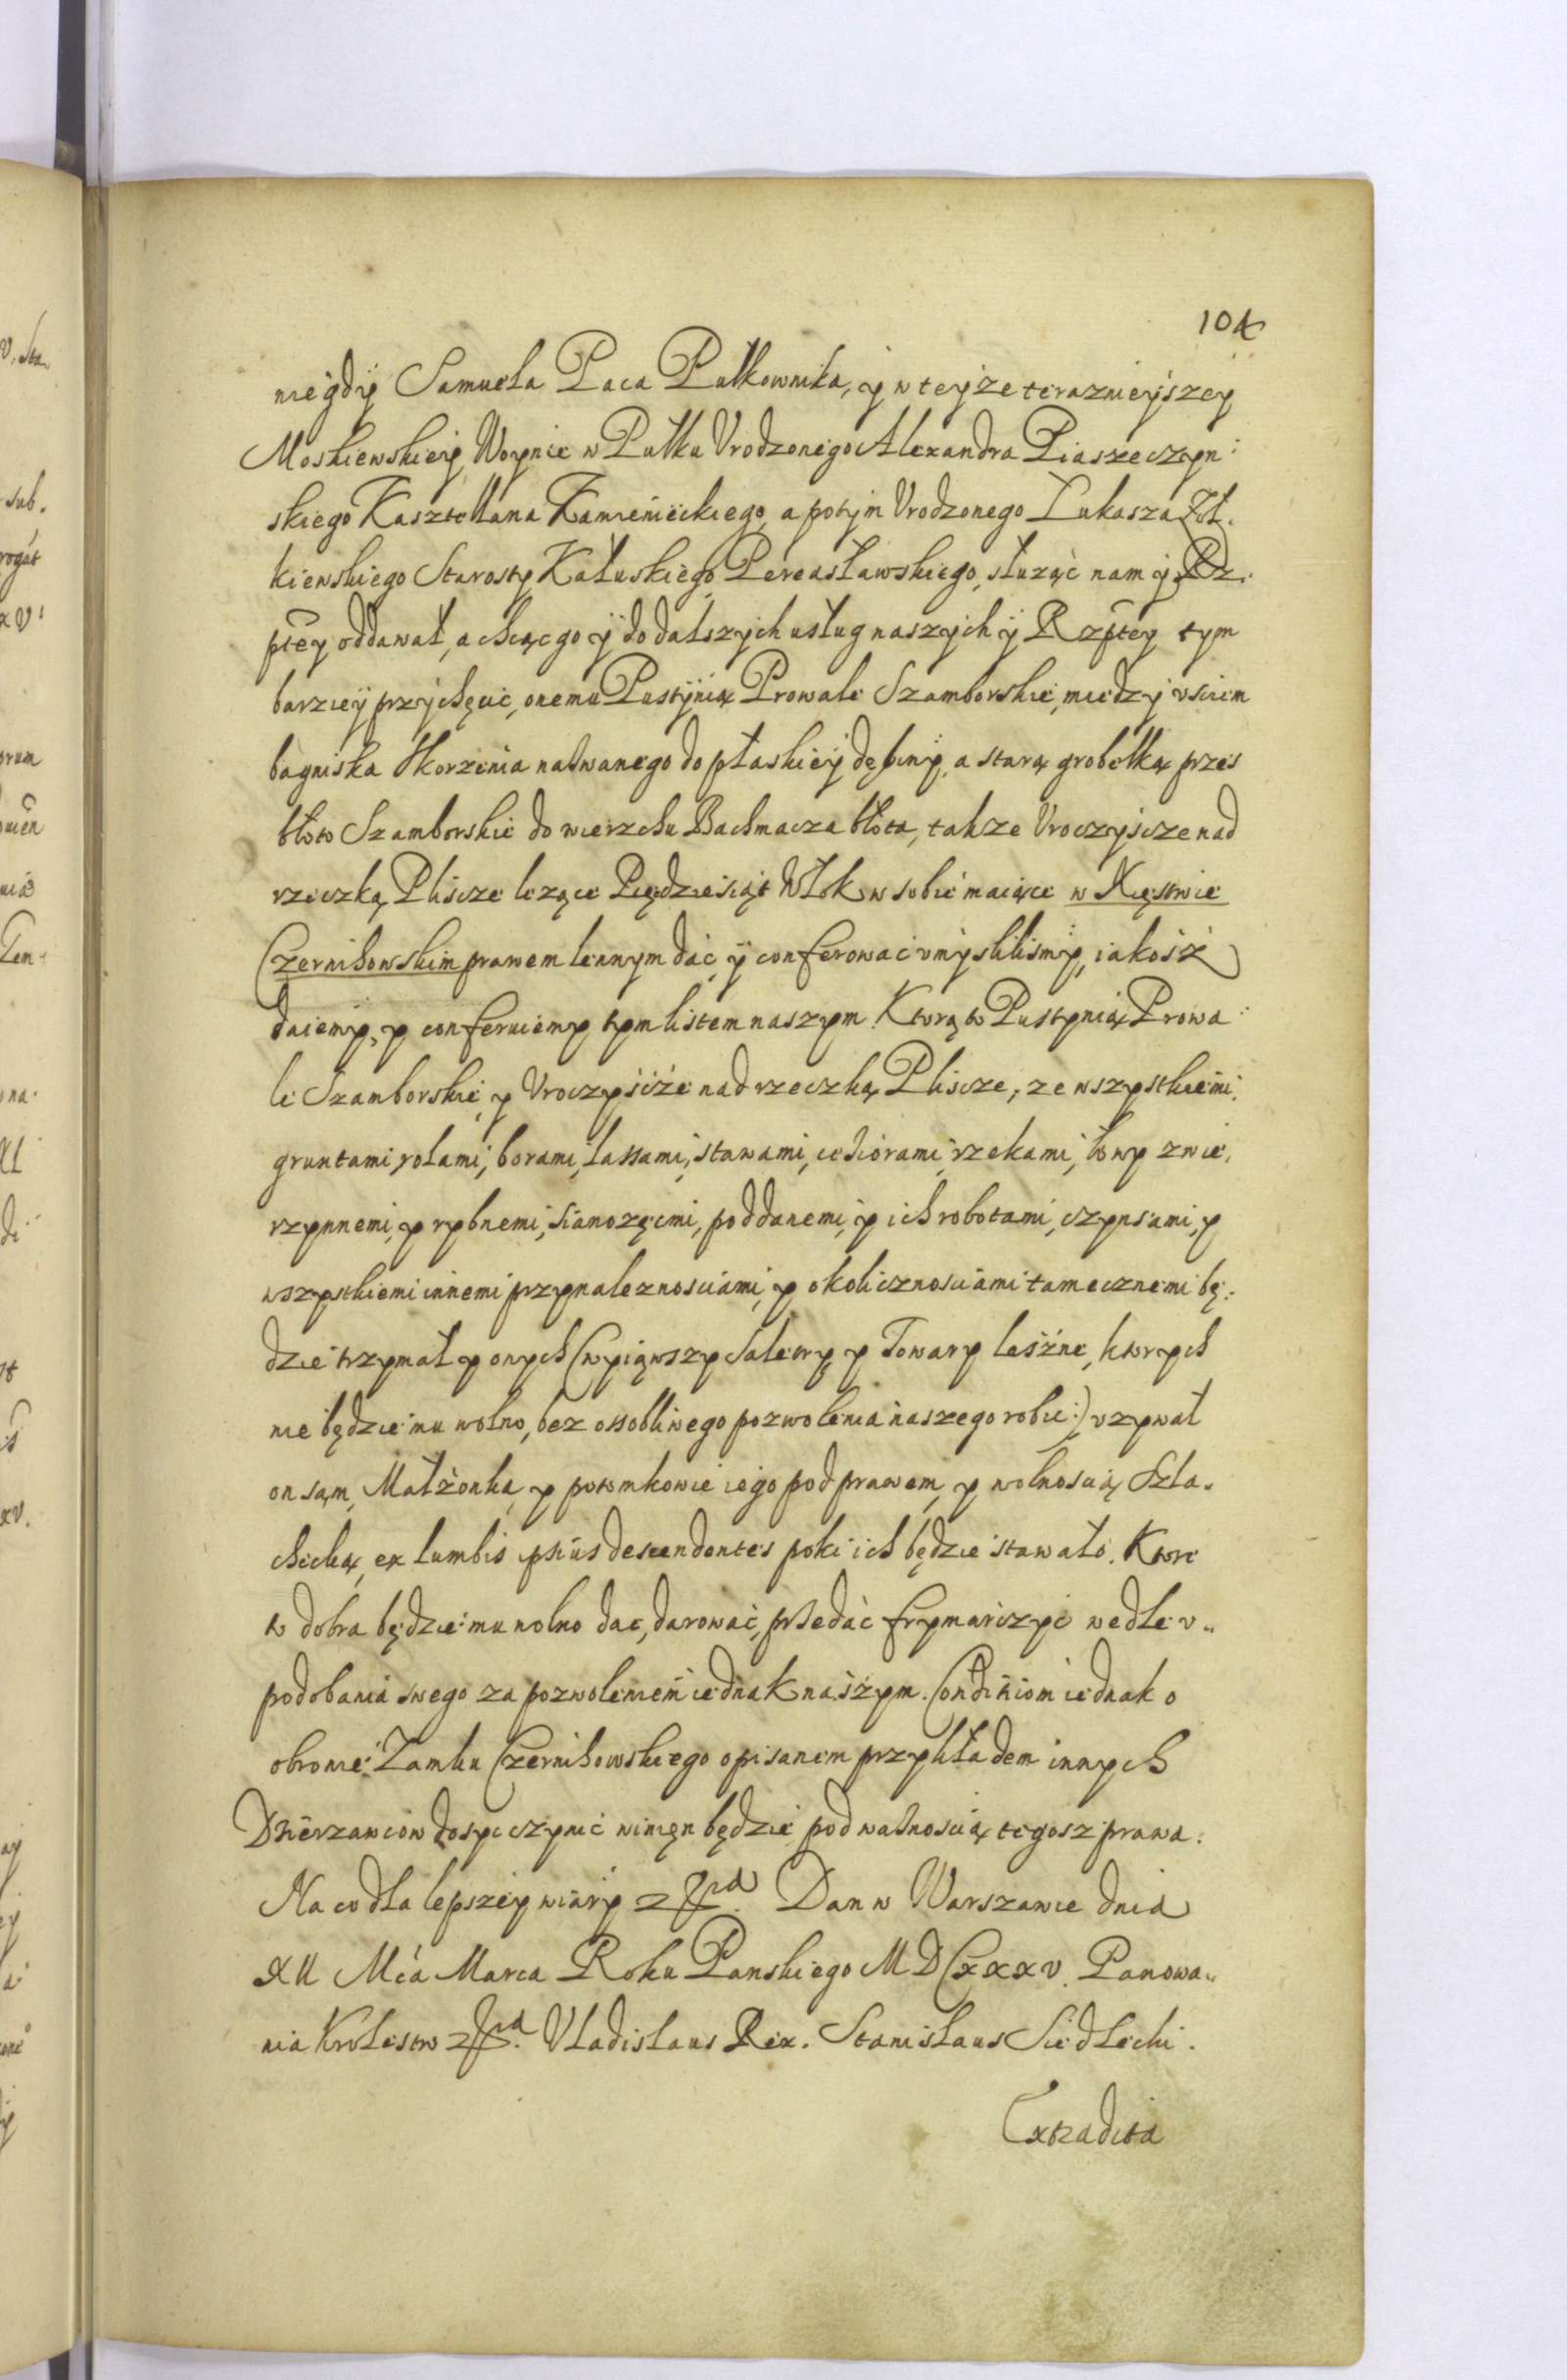 104
niegdy Samuela Paca Pułkownika, y w teyze terazneyszey
Moskiewskiey Woynie w Pułku Vrodzonego Alexandra Piaseczyn:
skiego Kasztellana Kamienieckiego, a potym Vrodzonego Łukasza Żoł.
kiewskiego Starosty Kałuskiego Pereasławskiego, służąc nam y Rz.
ptey oddawał, a chcąc go y do dalszych usług naszych y Rzptey tym
barziey przychęcić, onemu Pustynią Prowale Szamborskie, miedzy vściem
bagniska Skorzenia nazwanego do płaskiey dębiny, a starą grobelką przes
błoto Szamborskie do wierzchu Bachmacza błota, takze Vroczyscze nad
rzeczką Pliscze lezące Pięćdziesiąt Włok w sobie maiące w Xięstwie
Czernihowskim prawem lennym dać y conferować vmyśliliśmy, iakosz
daiemy, y conferuiemy tym listem naszym. Ktorą to Pustynią Prowa:
le Szamborskie, y Vroczyscze nad rzeczką Pliscze, ze wszystkiemi
gruntami, rolami, borami, lassami, stawami, ieziorami, rzekami, łowy zwie,
rzynnemi, y rybnemi, sianozęcmi, poddanemi, y ich robotami, czynsami, y
wszystkiemi innemi przynaleznosciami, y okolicznosciami tamecznemi bę:
dzie trzymał y onych (wyiąwszy Saletry y Towary leśne, ktorych
nie będzie mu wolno, bez ossobliwego pozwolenia naszego robić:) vzywał
on sąm, Małżonka, y potomkowie iego pod prawem, y wolnoscią Szla.
checką, ex lumbis ipsius descendentes poki ich będzie stawało. Ktore
to dobra będzie mu wolno dać, darować, przedać frymarczyć wedle v„
podobania swego za pozwoleniem iednak naszym. Conditiom iednak o
obronie Zamku Czernihowskiego opisanem przykładem innych
Dzierzawcow dosyc czynić winięn będzie pod waznoscią tegosz prawa.
Na co dla lepszey wiary Dan w Warszawie dnia
XII Mća Marca Roku Panskiego MDCXXXV. Panowa„
nia Krolestw Vladislaus Rex. Stanislaus Siedlecki.
Extradita